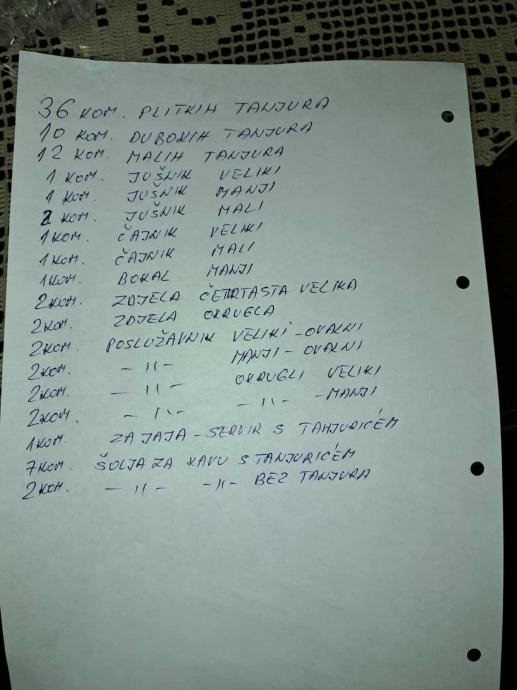 36 KOM. PLITKIH TANJURA
10 KOM. DUBOKIH TANJURA
12 KOM. MALIH TANJURA
1 KOM. JUŠNIK VELIKI
1 KOM. JUŠNIK MANJI
2 KOM. JUŠNIK MALI
1 KOM. ČAJNIK VELIKI
1 KOM. ČAJNIK MALI
1 KOM. BOKAL MANJI
2 KOM. ZDJELA ČETRTASTA VELIKA
2 KOM. ZDJELA OKRUGLA
2 KOM. POSLUŽAVNIK VELIKI - OVALNI
2 KOM. — 〃 — MANJI - OVALNI
2 KOM. — 〃 — OKRUGLI VELIKI
2 KOM. — 〃 — — 〃 — - MANJI
1 KOM. ZA JAJA - SERVIR S TANJURIĆEM
7 KOM. ŠOLJA ZA KAVU S TANJURIĆEM
2 KOM. — 〃 — — 〃 — BEZ TANJURA